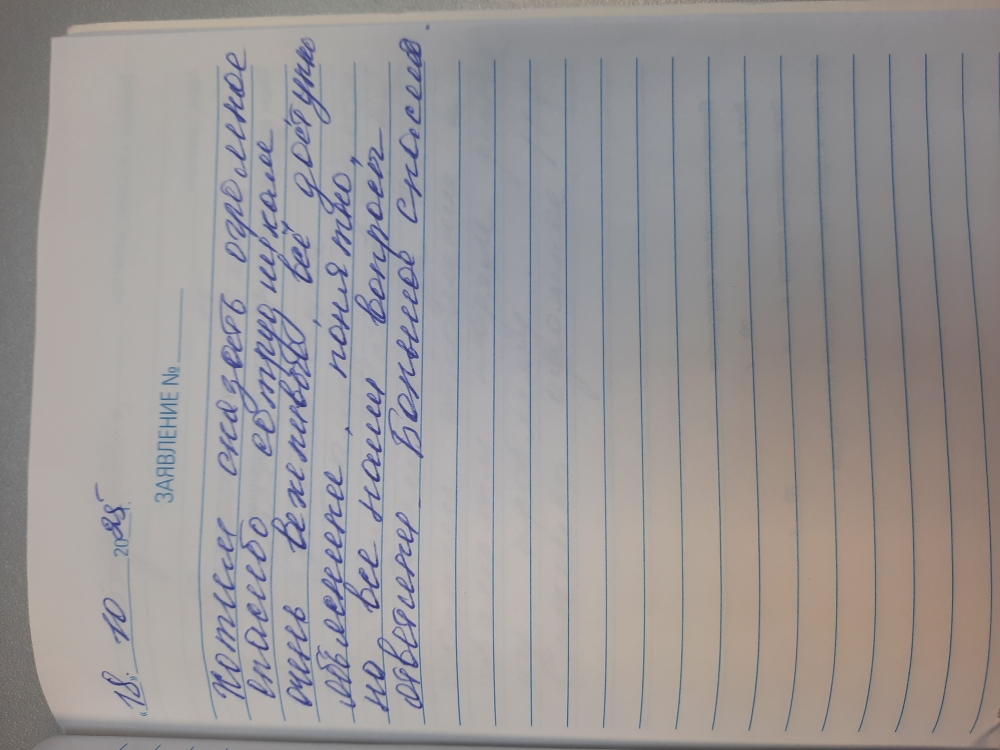 "18" 10 2025.
ЗАЯВЛЕНИЕ № 
Хотим сказать огромное
спасибо сотрудникам
очень вежливый, всё доступно
объяснили, понятно,
на все наши вопросы
ответили. Большое спасибо.